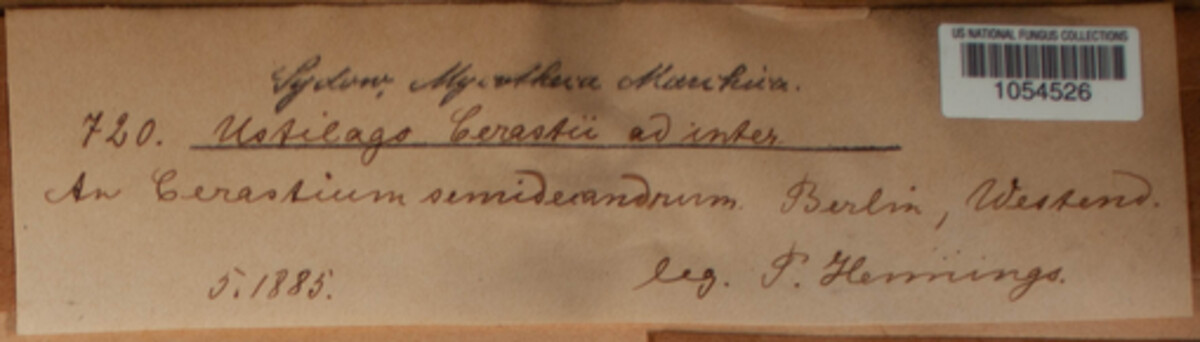 US NATIONAL FUNGUS COLLECTIONS
1054526
Sydow, Mycotheca Marchica.
720. Ustilago Cerastii ad inter
An Cerastium semidecandrum. Berlin, Westend.
5.1885. leg. P. Hennings.